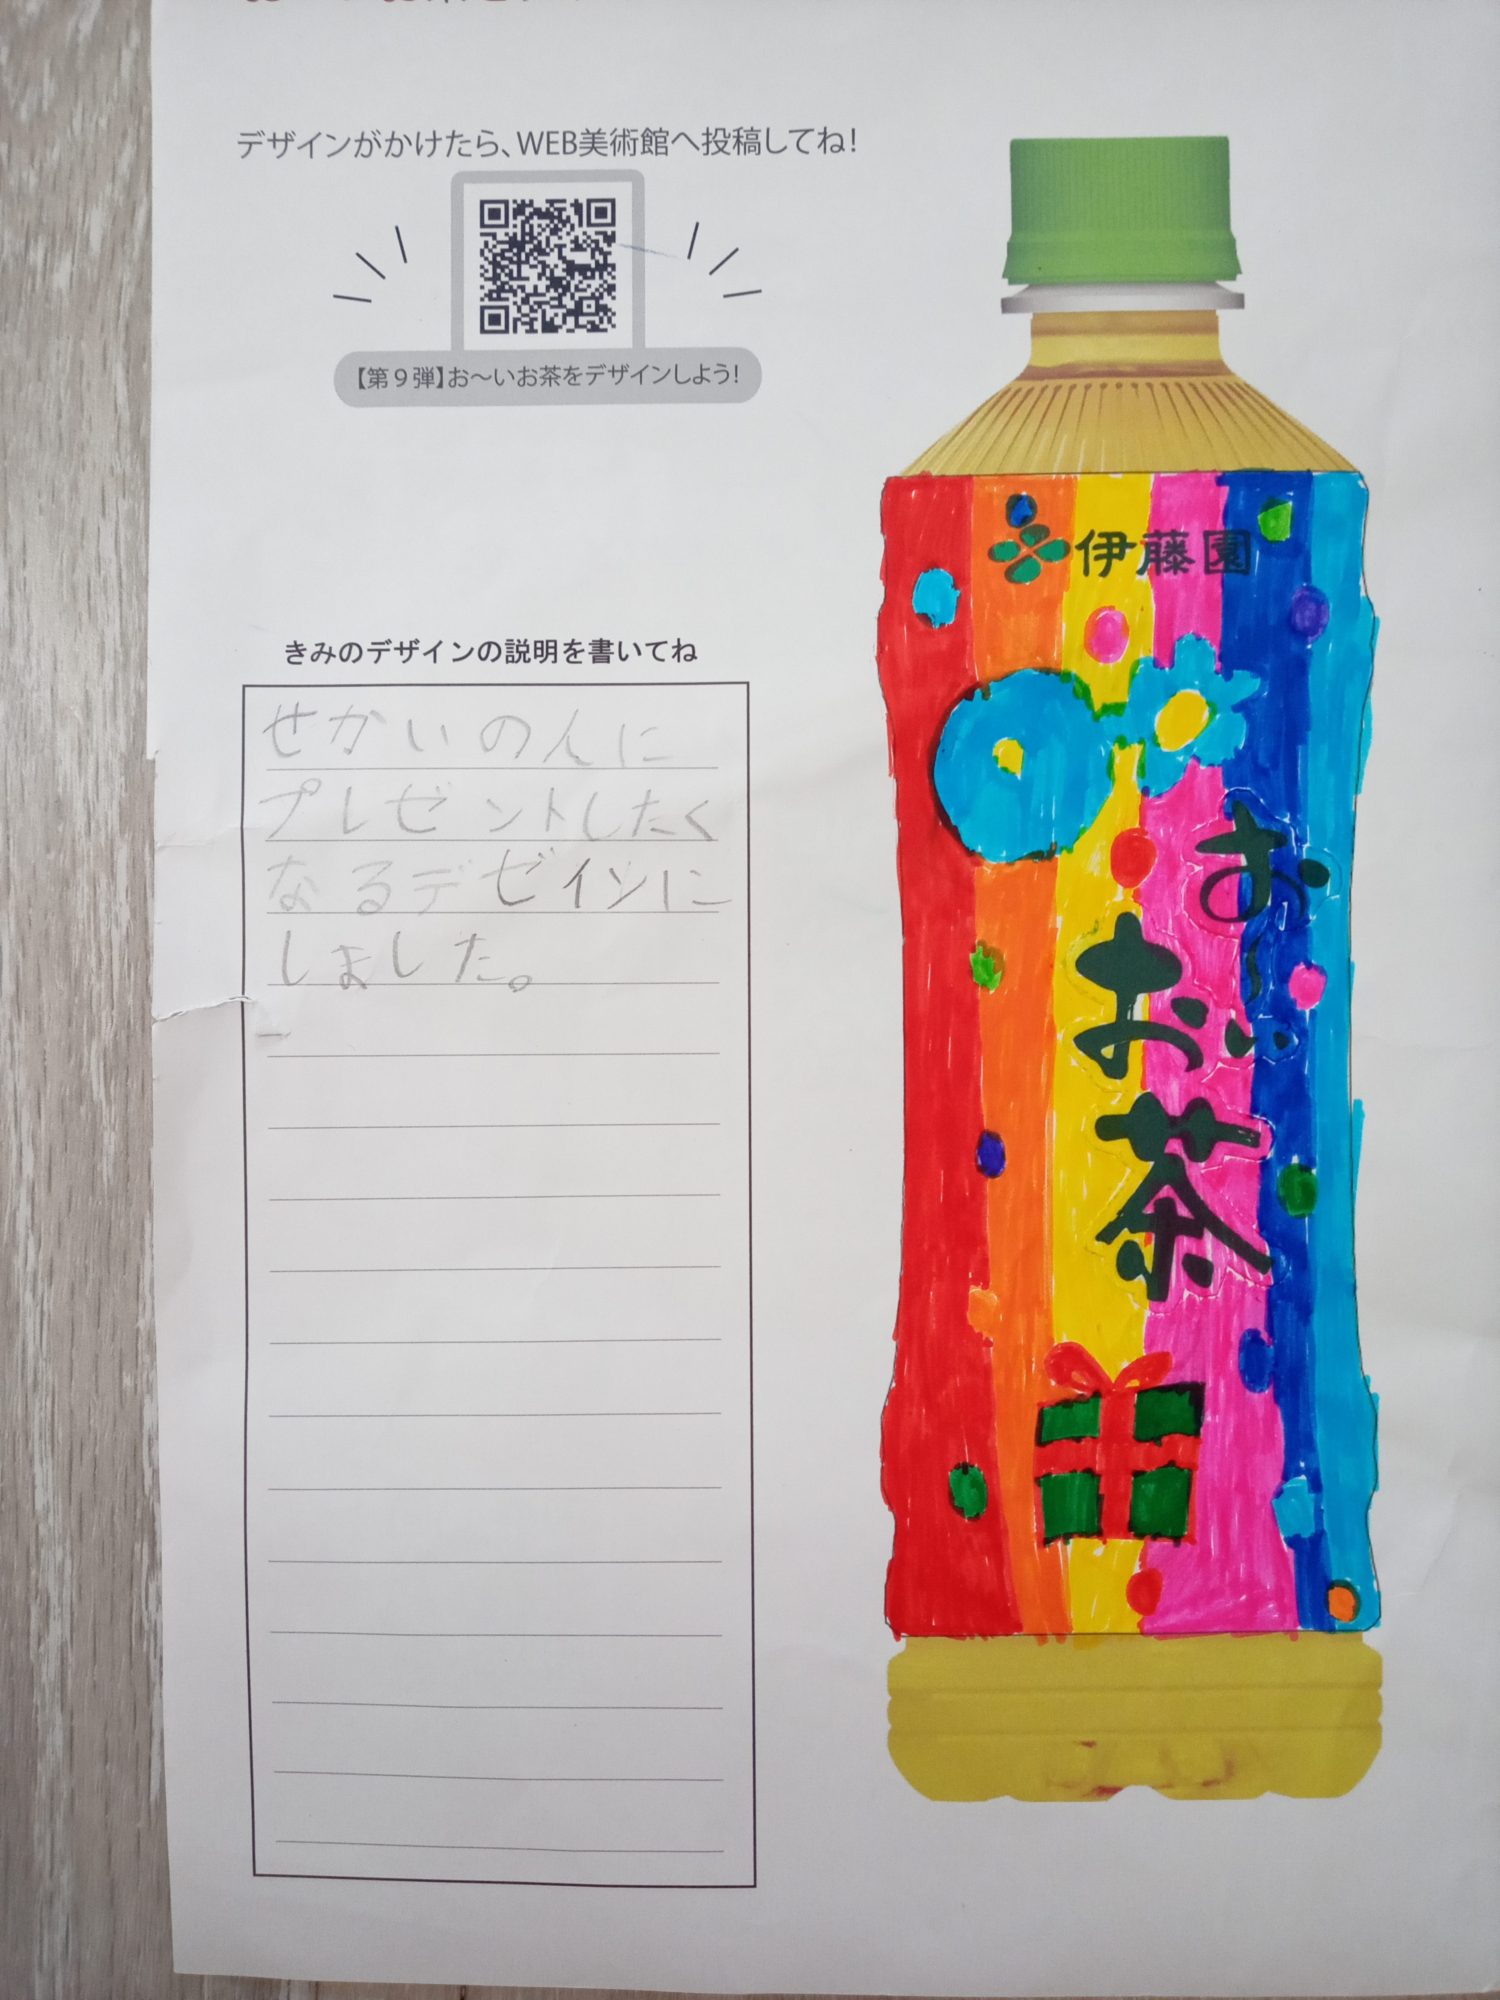 デザインがかけたら、WEB美術館へ投稿してね!
【第9弾】お〜いお茶をデザインしよう!
きみのデザインの説明を書いてね
せかいの人に
プレゼントしたく
なるデゼインに
しました。
伊藤園
お〜い
お茶